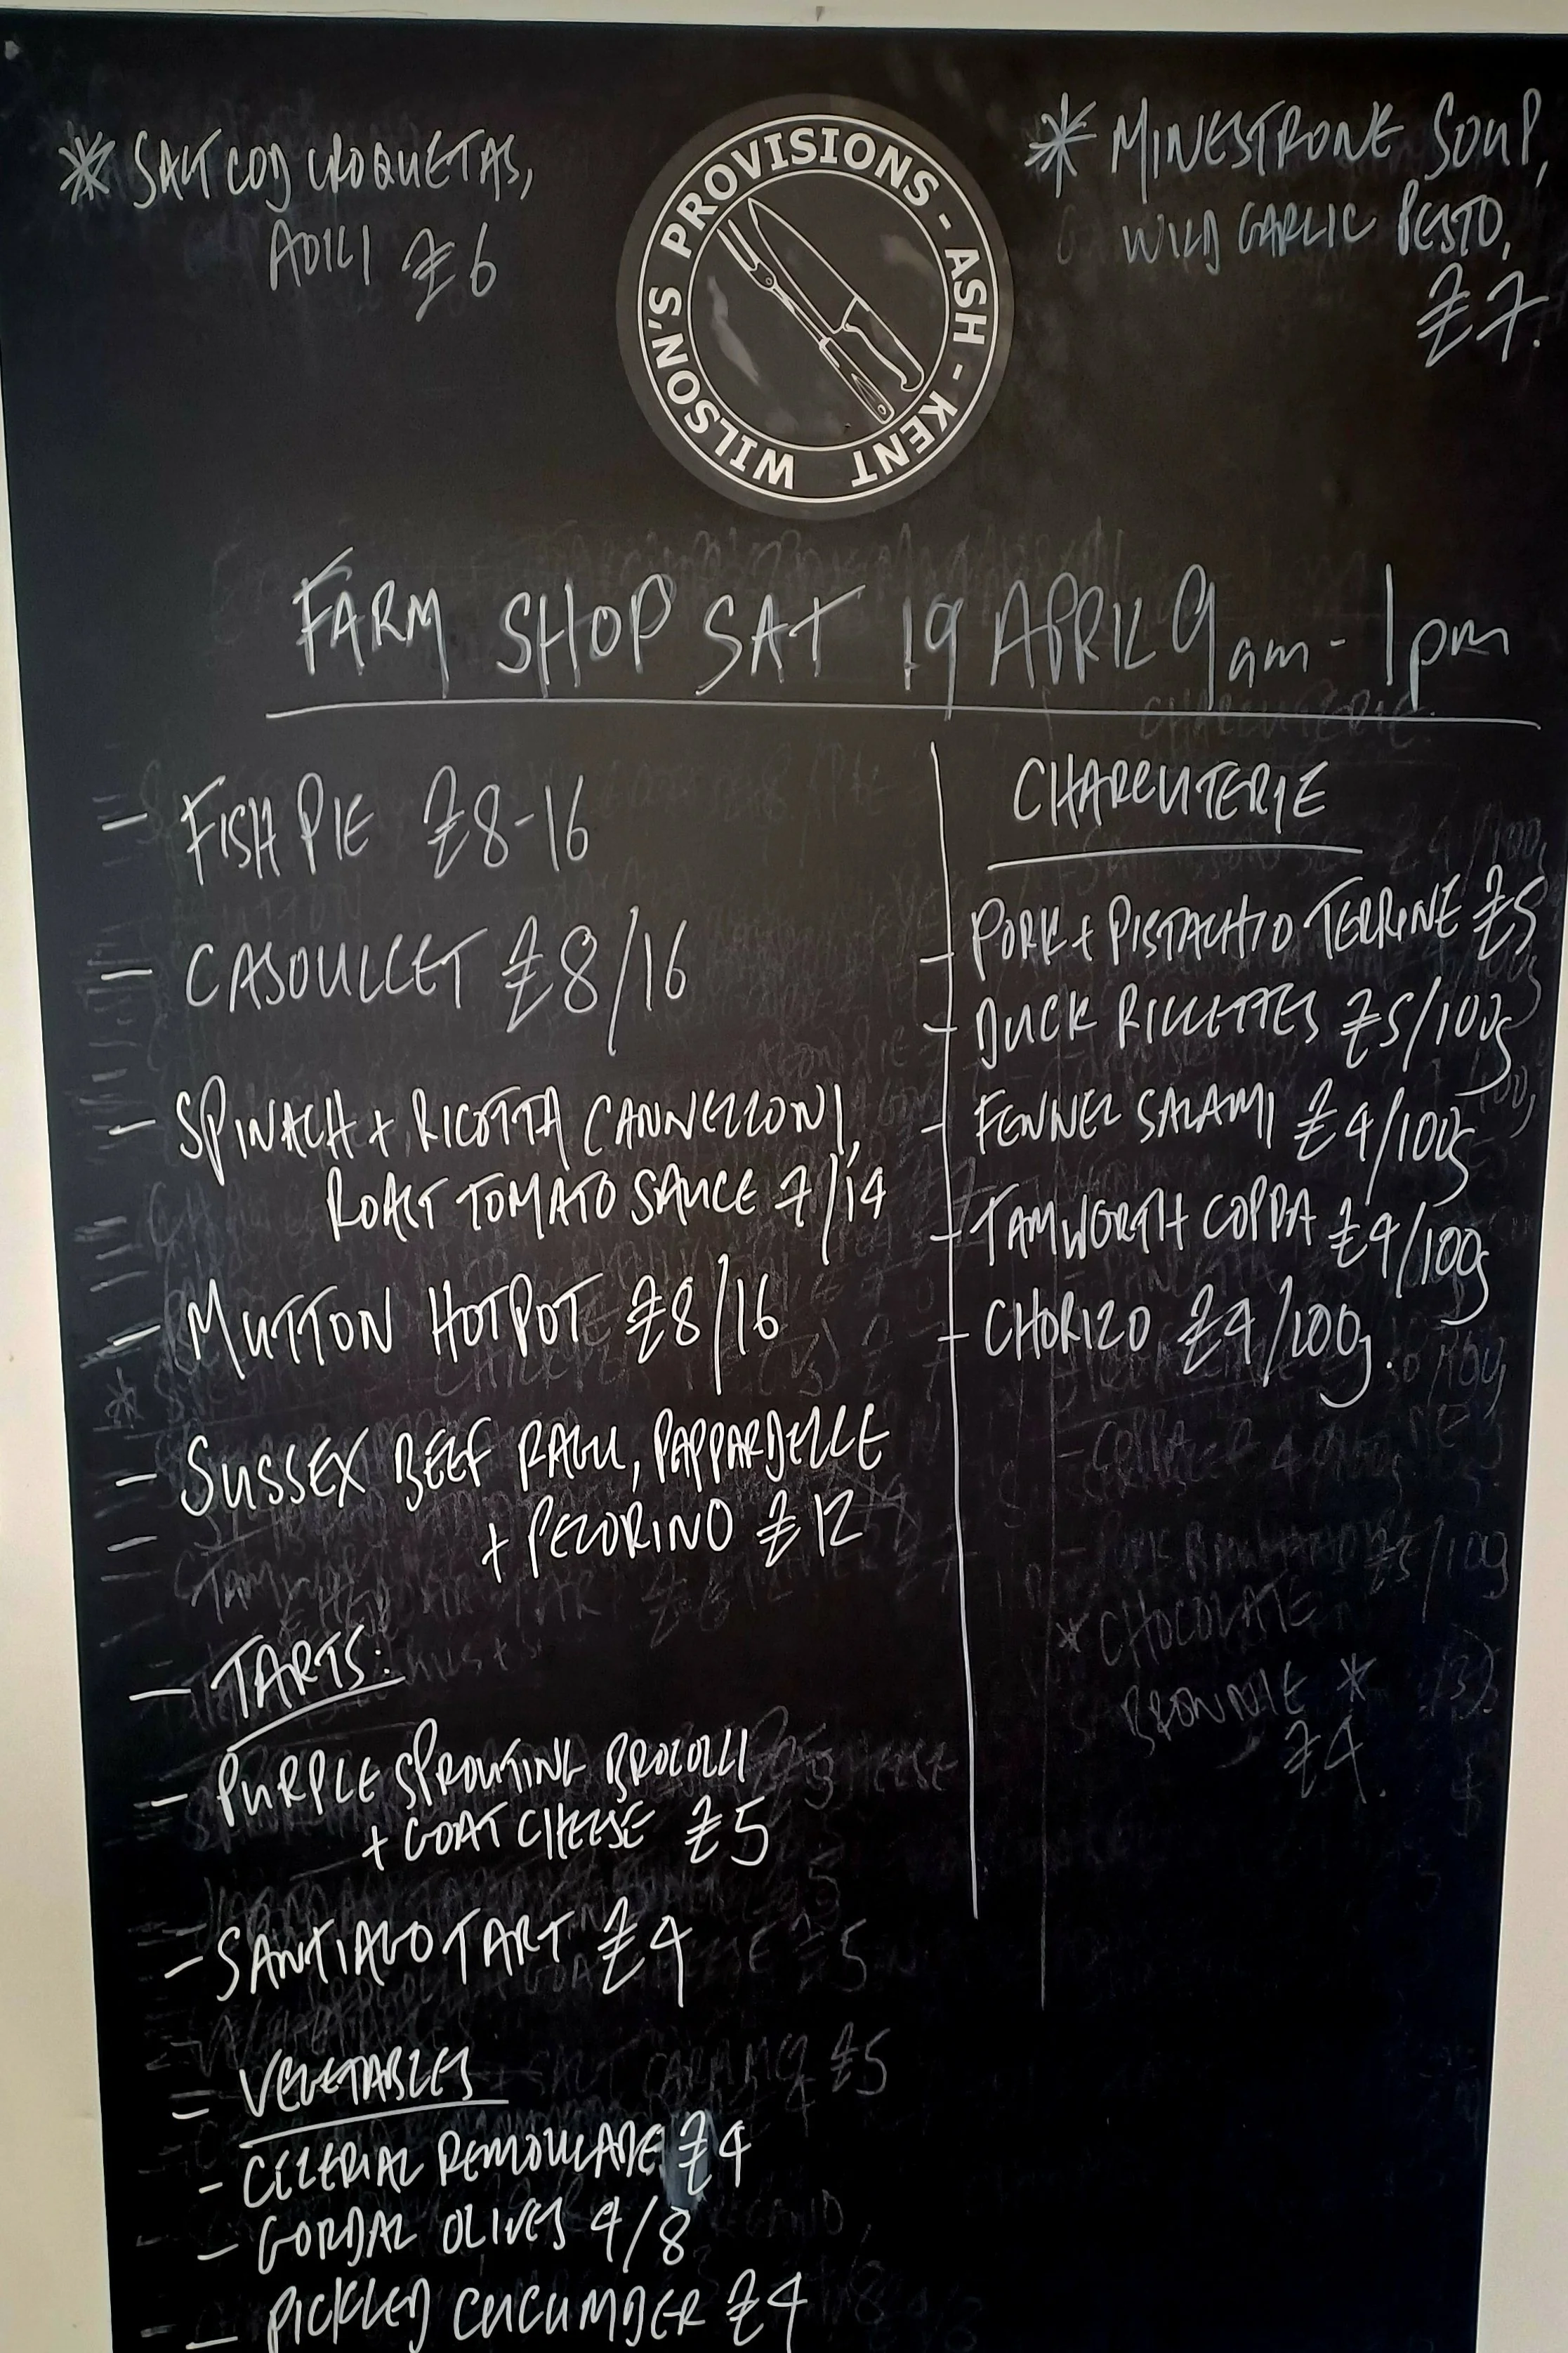 * SALT COD CROQUETAS,
AOILI £6
WILSON'S PROVISIONS - ASH - KENT
* MINESTRONE SOUP,
WILD GARLIC PESTO,
£7.
FARM SHOP SAT 19 APRIL 9am - 1pm
- FISH PIE £8-16
- CASOULLET £8/16
- SPINACH + RICOTTA CANNELLONI,
ROAST TOMATO SAUCE 7/14
- MUTTON HOTPOT £8/16
- SUSSEX BEEF RAGU, PAPPARDELLE
+ PECORINO £12
- TARTS:
- PURPLE SPROUTING BROCOLLI
+ GOAT CHEESE £5
- SANTIAGO TART £4
= VEGETABLES
- CELERIAC REMOULADE £4
- GORDAL OLIVES 4/8
- PICKLED CUCUMBER £4
CHARCUTERIE
- PORK + PISTACHIO TERRINE £5
- DUCK RILLETTES £5/100g
- FENNEL SALAMI £4/100g
- TAMWORTH COPPA £4/100g
- CHORIZO £4/100g.
* CHOCOLATE
BROWNIE *
£4.